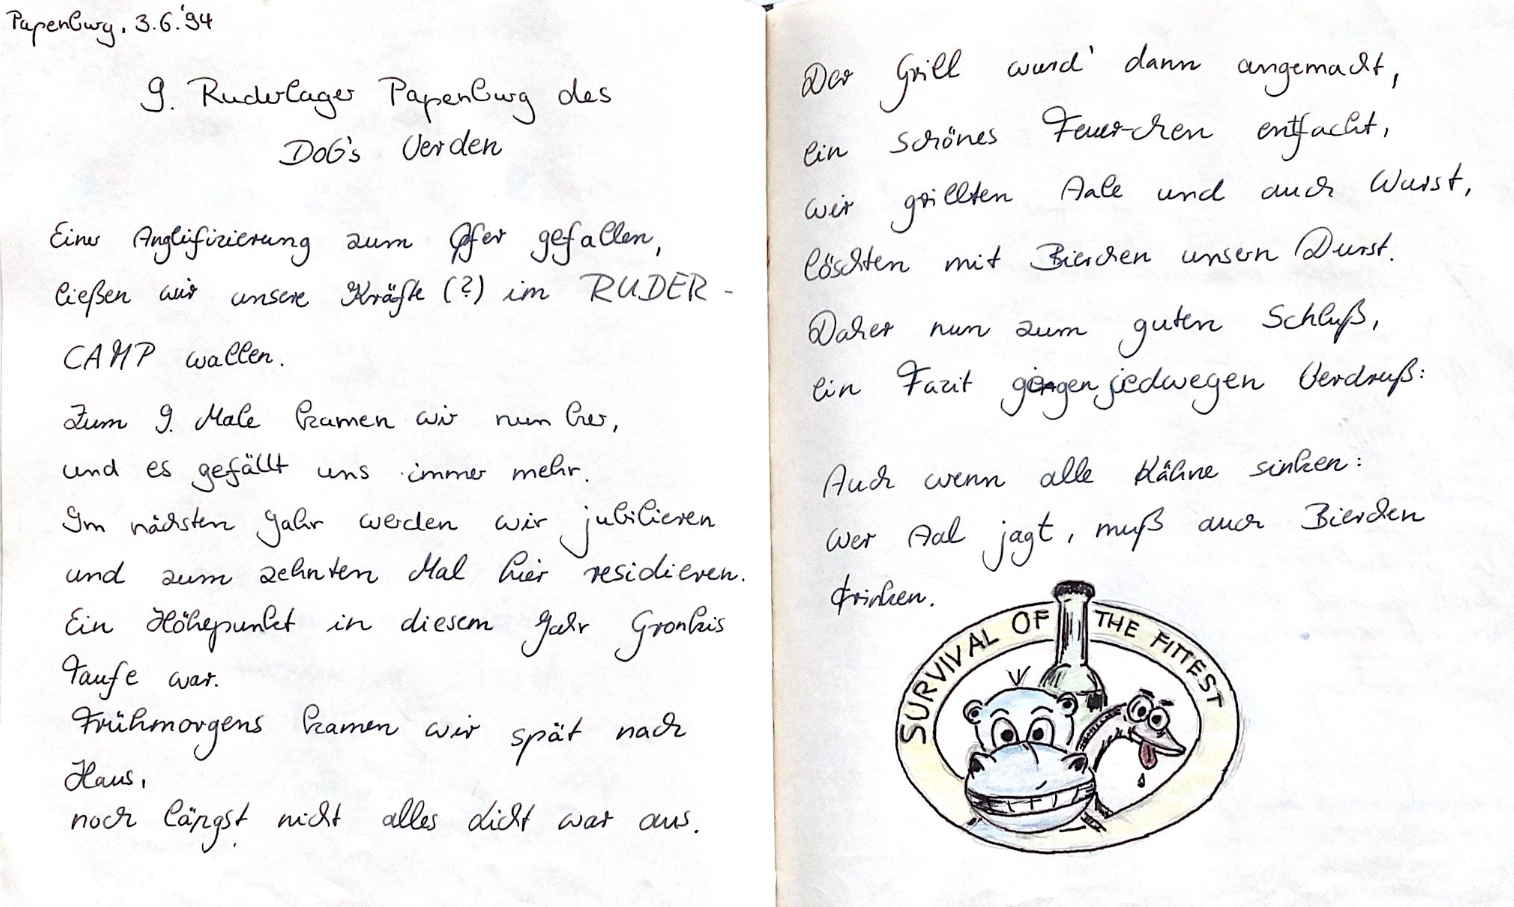 Papenburg, 3.6.'94
9. Ruderlager Papenburg des
DoG's Verden
Einer Anglifizierung zum Opfer gefallen,
ließen wir unsere Kräfte (?) im RUDER-
CAMP wallen.
Zum 9. Male kamen wir nun her,
und es gefällt uns immer mehr.
Im nächsten Jahr werden wir jubilieren
und zum zehnten Mal hier residieren.
Ein Höhepunkt in diesem Jahr Gronkis
Taufe war.
Frühmorgens kamen wir spät nach
Haus,
noch längst nicht alles dicht war aus.
Der Grill wurd' dann angemacht,
ein schönes Feuer-chen entfacht,
wir grillten Aale und auch Wurst,
löschten mit Bierchen unsern Durst.
Daher nun zum guten Schluß,
ein Fazit gegen jedwegen Verdruß:
Auch wenn alle Kähne sinken:
wer Aal jagt, muß auch Bierchen
trinken.
SURVIVAL OF THE FITTEST